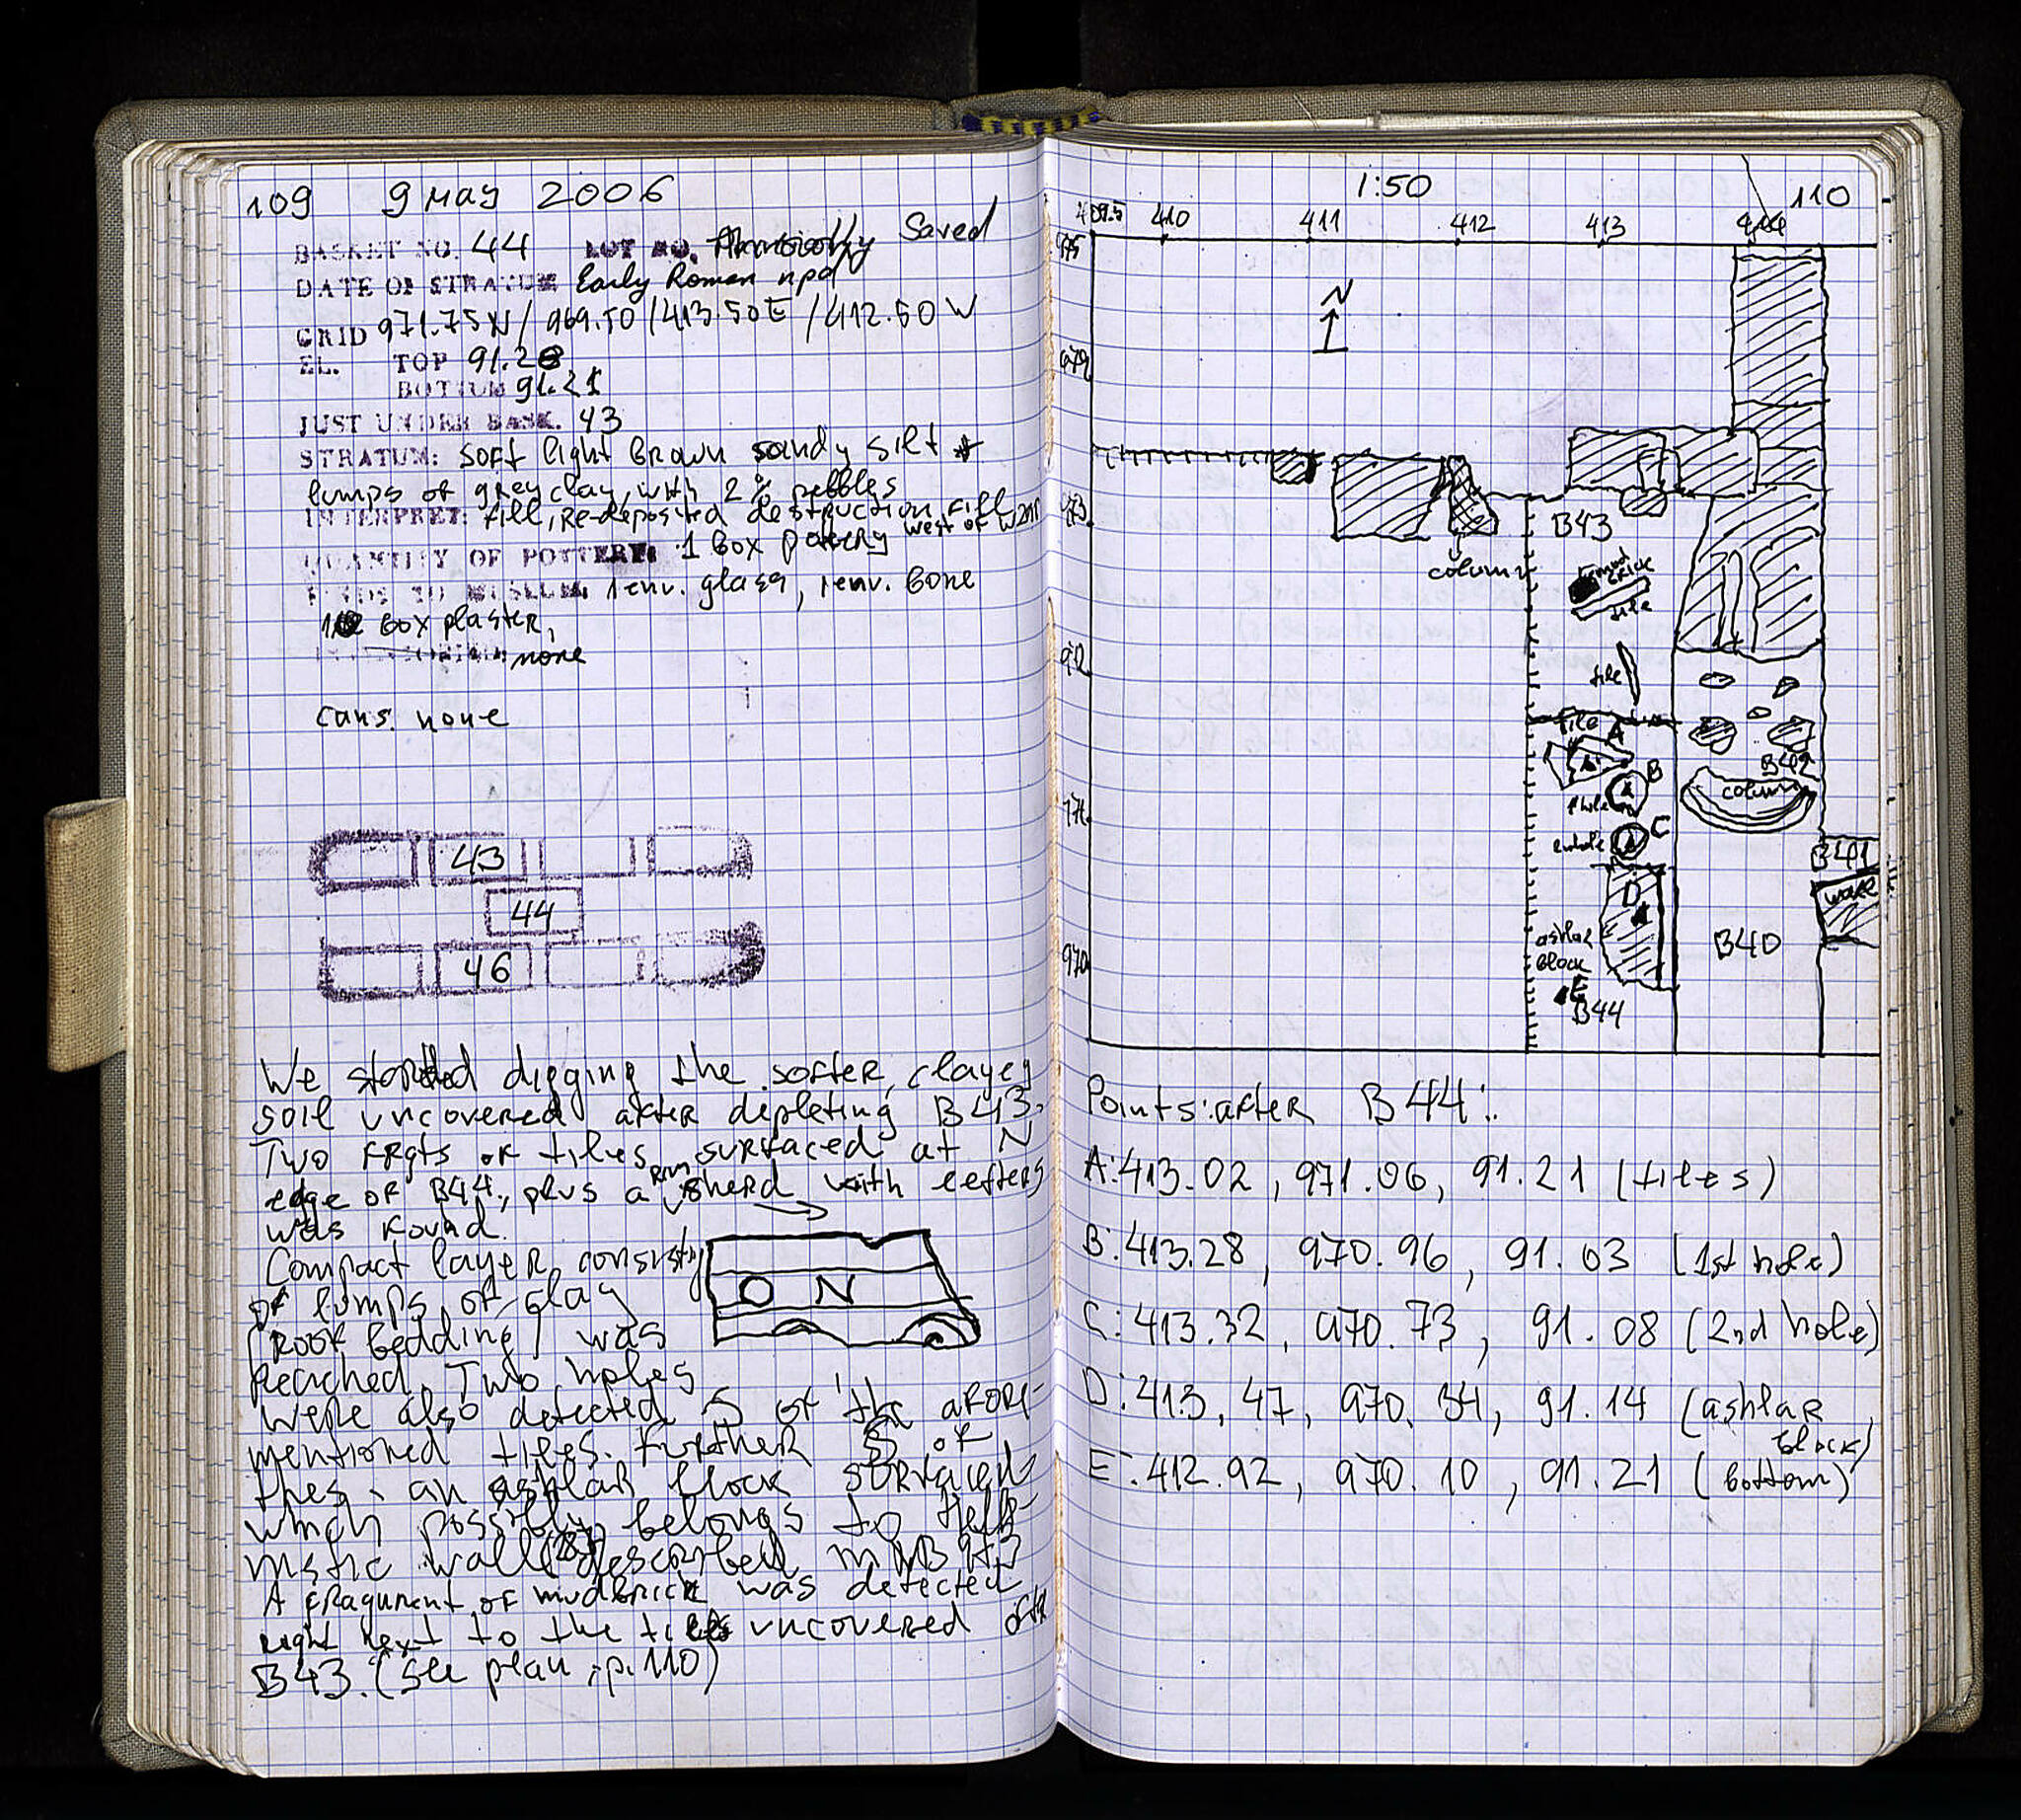 109 9 May 2006
BASKET NO. 44 LOT NO. Saved
DATE OF STRATUM Early Roman npd
GRID 971.75N / 969.50 / 413.50E / 412.50 W
EL. TOP 91.28
BOTTOM 91.21
JUST UNDER BASK. 43
STRATUM: soft light brown sandy silt +
lumps of grey clay, with 2% pebbles
INTERPRET: fill, re-deposited destruction fill
west of
QUANTITY OF POTTERY: 1 box pottery
FINDS TO MUSEUM: 1 env. glass, 1 env. bone
1 box plaster,
none
cans: none
43
44
46
We started digging the softer, clayey
soil uncovered after depleting B43.
Two frgts of tiles surfaced at N
edge of B44, plus a rim sherd with letters
was found.
Compact layer consistg
of lumps of clay
(roof bedding) was
reached. Two holes
were also detected S of the afore-
mentioned tiles. Further S of
thes. an ashlar block surfaced
which possibly belongs to Helle-
nistic wall described in NB 973
A fragument of mudbrick was detected
right next to the tiles uncovered after
B43. (see plan, p. 110)
O N
1:50 110
409.5 410 411 412 413 414
975
N
974
973
B43
column
mudbrick
tile
972
tile
tile A
B42
B
column
hole
971
C
hole
B41
D
wall
ashlar
block
970
B40
E
B44
Points: after B44:
A: 413.02, 971.06, 91.21 (tiles)
B: 413.28, 970.96, 91.03 (1st hole)
C: 413.32, 970.73, 91.08 (2nd hole)
D: 413.47, 970.34, 91.14 (ashlar
block)
E: 412.92, 970.10, 91.21 (bottom)